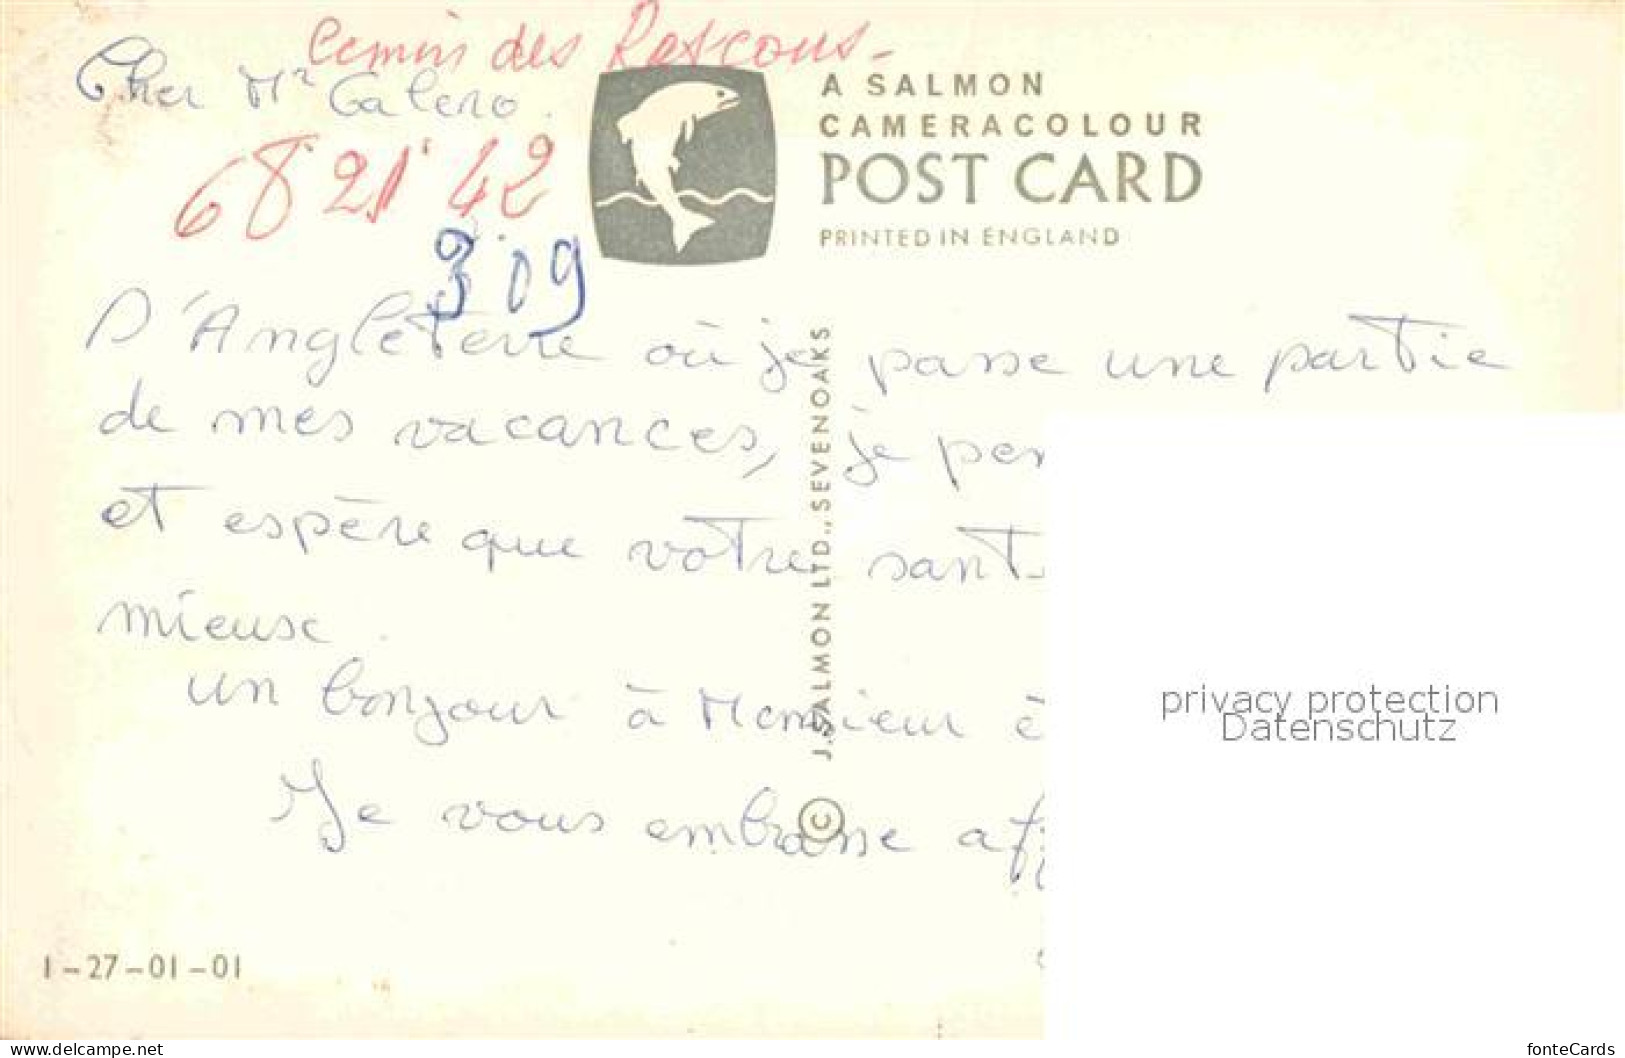 Cemin des Rascous -
Cher Mr Galero.
A SALMON
CAMERACOLOUR
POST CARD
PRINTED IN ENGLAND
68 21 42
309
D'Angleterre où je passe une partie
de mes vacances, je pen
et espère que votre sant
mieux.
un bonjour à Monsieur
Je vous embrasse aff
J. SALMON LTD., SEVENOAKS ©
privacy protection
Datenschutz
1-27-01-01
www.delcampe.net
fonteCards